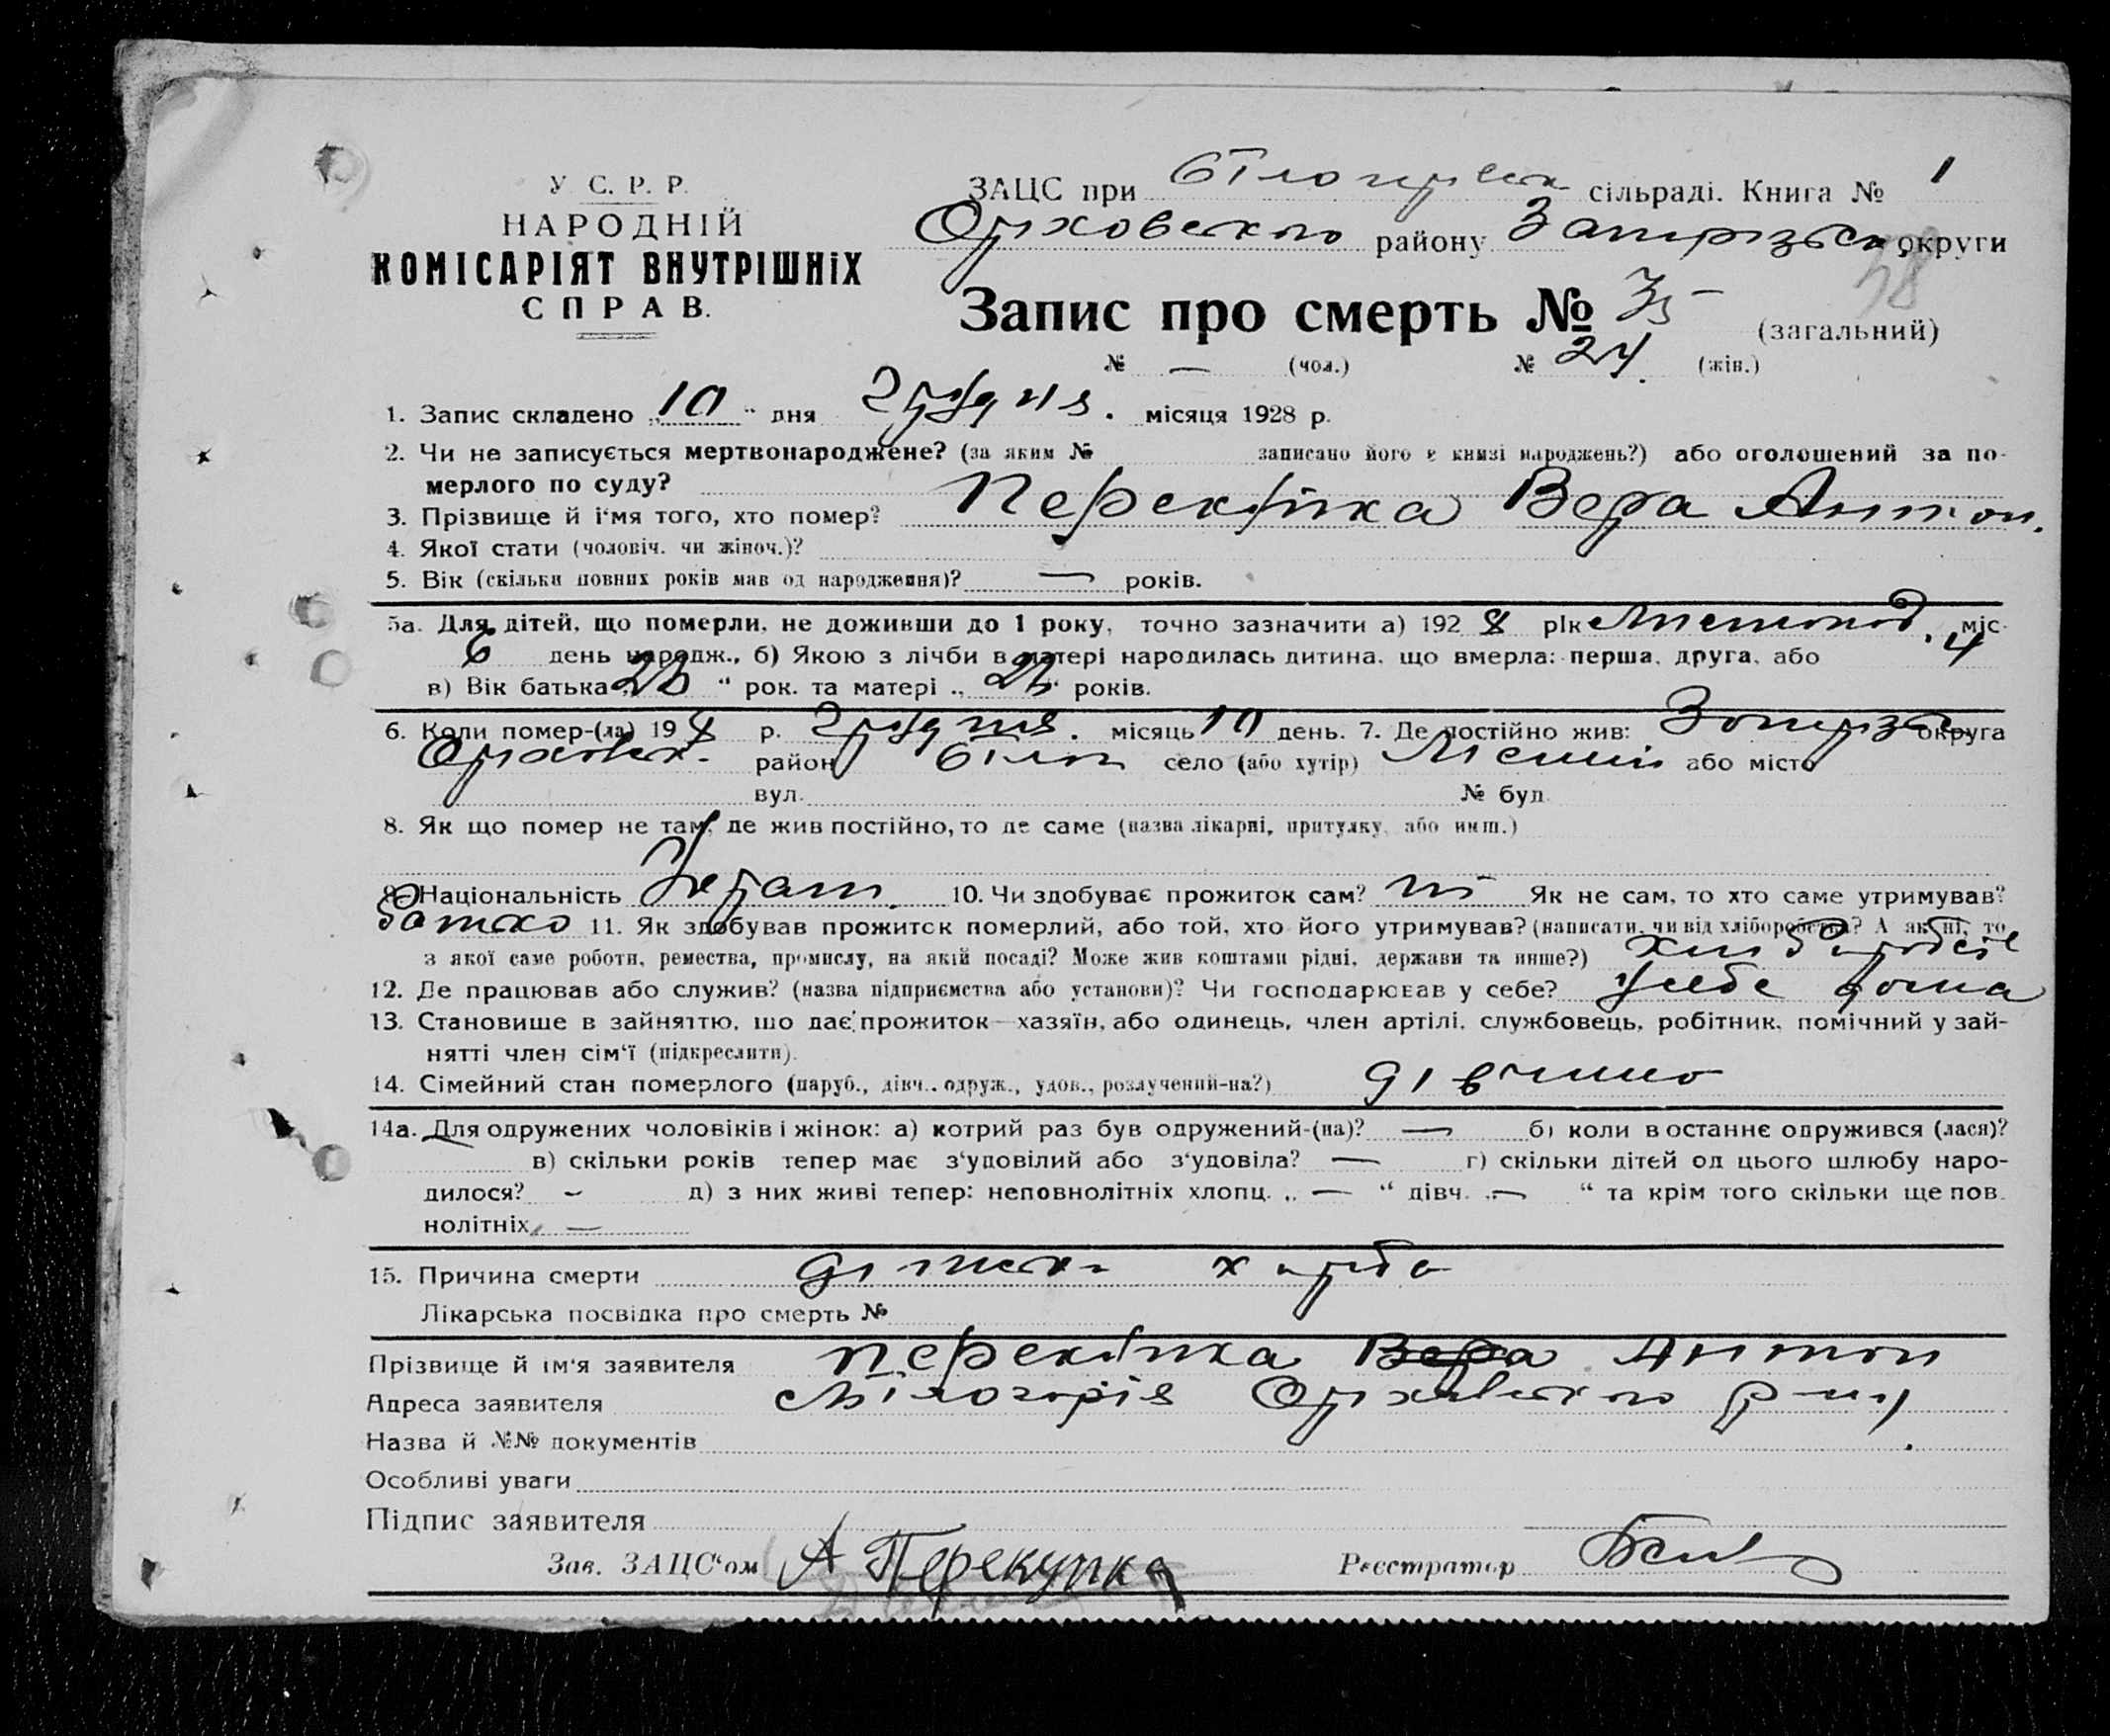 У С. Р. Р.
НАРОДНІЙ
КОМІСАРІЯТ ВНУТРІШНІХ
СПРАВ.
ЗАЦС при сільраді. Книга № 1
Оріховського району Запорізьк округи
38
Запис про смерть № 35 (загальний)
№ — (чол.) № 24. (жін.)
1. Запис складено „10“ дня грудня. місяця 1928 р.
2. Чи не записується мертвонароджене? (за яким № записано його в книзі народжень?) або оголошений за по-
мерлого по суду?
3. Прізвище й і‘мя того, хто помер? Перекупка Вера Антон.
4. Якої стати (чоловіч. чи жіноч.)?
5. Вік (скільки повних років мав од народження)? — років.
5а. Для дітей, що померли, не доживши до 1 року, точно зазначити а) 1928 рік Листопад. міс.
6 день народж., б) Якою з лічби в матері народилась дитина, що вмерла: перша, друга, або 4
в) Вік батька „ “ рок. та матері „ “ років.
6. Коли помер-(ла) 19 р. грудня. місяць 10 день. 7. Де постійно жив: Запорізьк округа
Оріхівськ. район село (або хутір) або місто
вул. № буд.
8. Як що помер не там, де жив постійно, то де саме (назва лікарні, притулку, або инш.)
9. Національність Украін. 10. Чи здобуває прожиток сам? ні Як не сам, то хто саме утримував?
батько 11. Як здобував прожиток померлий, або той, хто його утримував? (написати, чи від хліборобства? А як ні, то
з якої саме роботи, ремества, промислу, на якій посаді? Може жив коштами рідні, держави та инше?)
12. Де працював або служив? (назва підприємства або установи)? Чи господарював у себе? у себе дома
13. Становище в зайняттю, що дає прожиток—хазяїн, або одинець, член артілі, службовець, робітник, помічний у зай-
нятті член сім‘ї (підкреслити).
14. Сімейний стан померлого (паруб., дівч., одруж., удов., розлучений-на?) дівчина
14а. Для одружених чоловіків і жінок: а) котрий раз був одружений-(на)? — б) коли востаннє одружився (лася)?
в) скільки років тепер має з‘удовілий або з‘удовіла? — г) скільки дітей од цього шлюбу наро-
дилося? - д) з них живі тепер: неповнолітніх хлопц. „ — “ дівч. „ — “ та крім того скільки ще пов.
нолітніх —
15. Причина смерти дітськ хороба
Лікарська посвідка про смерть №
Прізвище й ім‘я заявителя Перекупка Вера Антон
Адреса заявителя Білогорія Оріхівського р-ну
Назва й №№ документів
Особливі уваги
Підпис заявителя
Зав. ЗАЦС‘ом А Перекупка Реєстратор